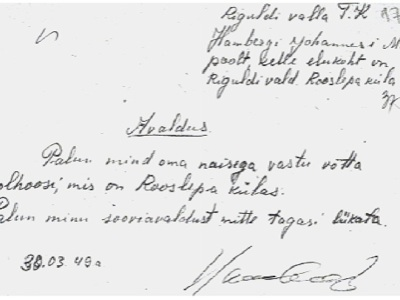 Riguldi valla T.K 17
Hambergi Johannes'i M
poolt, kelle elukoht on
Riguldi vald Rooslepa küla
Avaldus.
Palun mind oma naisega vastu võtta
olhoosi, mis on Rooslepa külas.
Palun minu sooviavaldust mitte tagasi lükata.
30.03.49a